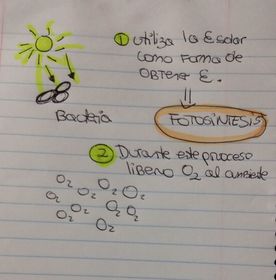 ① utiliza la E solar
como forma de
obtener E.
Bacteria
FOTOSINTESIS
② Durante este proceso
libero O₂ al ambiente
O₂ O₂ O₂
O₂ O₂ O₂ O₂
O₂ O₂ O₂ O₂
O₂